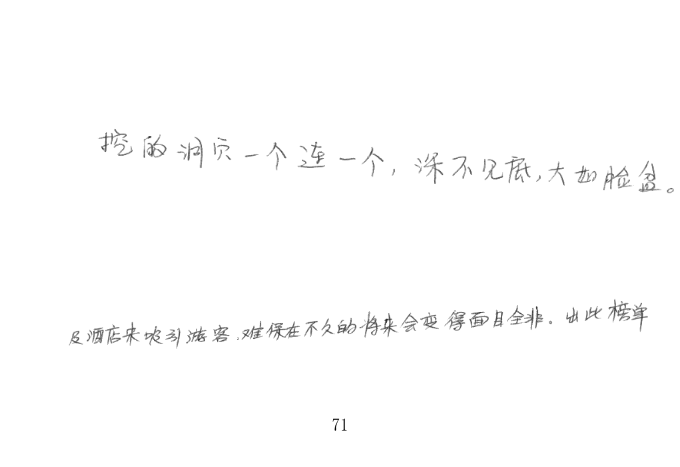 挖的洞穴一个连一个，深不见底，大如脸盆。
及酒店来吸引游客，难保在不久的将来会变得面目全非。出此榜单
71